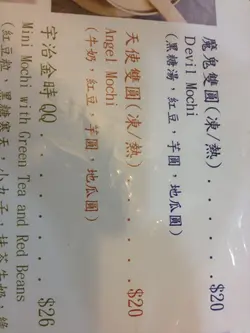 魔鬼雙圓(凍/熱).......$20
Devil Mochi
(黑糖湯,紅豆,芋圓,地瓜圓)
天使雙圓(凍/熱).......$20
Angel Mochi
(牛奶,紅豆,芋圓,地瓜圓)
宇治金時QQ..........$26
Mini Mochi with Green Tea and Red Beans
(紅豆粒,黑糖蜜天,小丸子,抹茶牛奶,綠